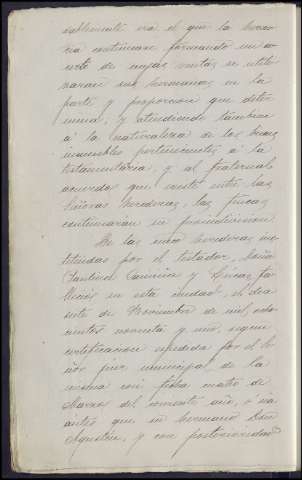 era el que la heren-
cia continuase formando un a-
cerbo de cuyas rentas se utili-
zaran sus hermanas en la
parte y proporcion que deter-
mina, y atendiendo tambien
á la naturaleza de los bienes
inmuebles pertenecientes á la
testamentaria, y al fraternal
acuerdo que existe entre las
Señoras herederas, las fincas
continuarán en proindivision.
De las cinco herederas ins-
tituidas por el testador, Doña
y falle-
ció en esta ciudad, el dia
siete de Noviembre de mil ocho-
cientos noventa y uno, segun
certificacion expedida por el Se-
ñor juez municipal de la
misma con fecha cuatro de
Marzo del corriente año, ó sea
antes que su hermano Don
Agustin, y con posterioridad